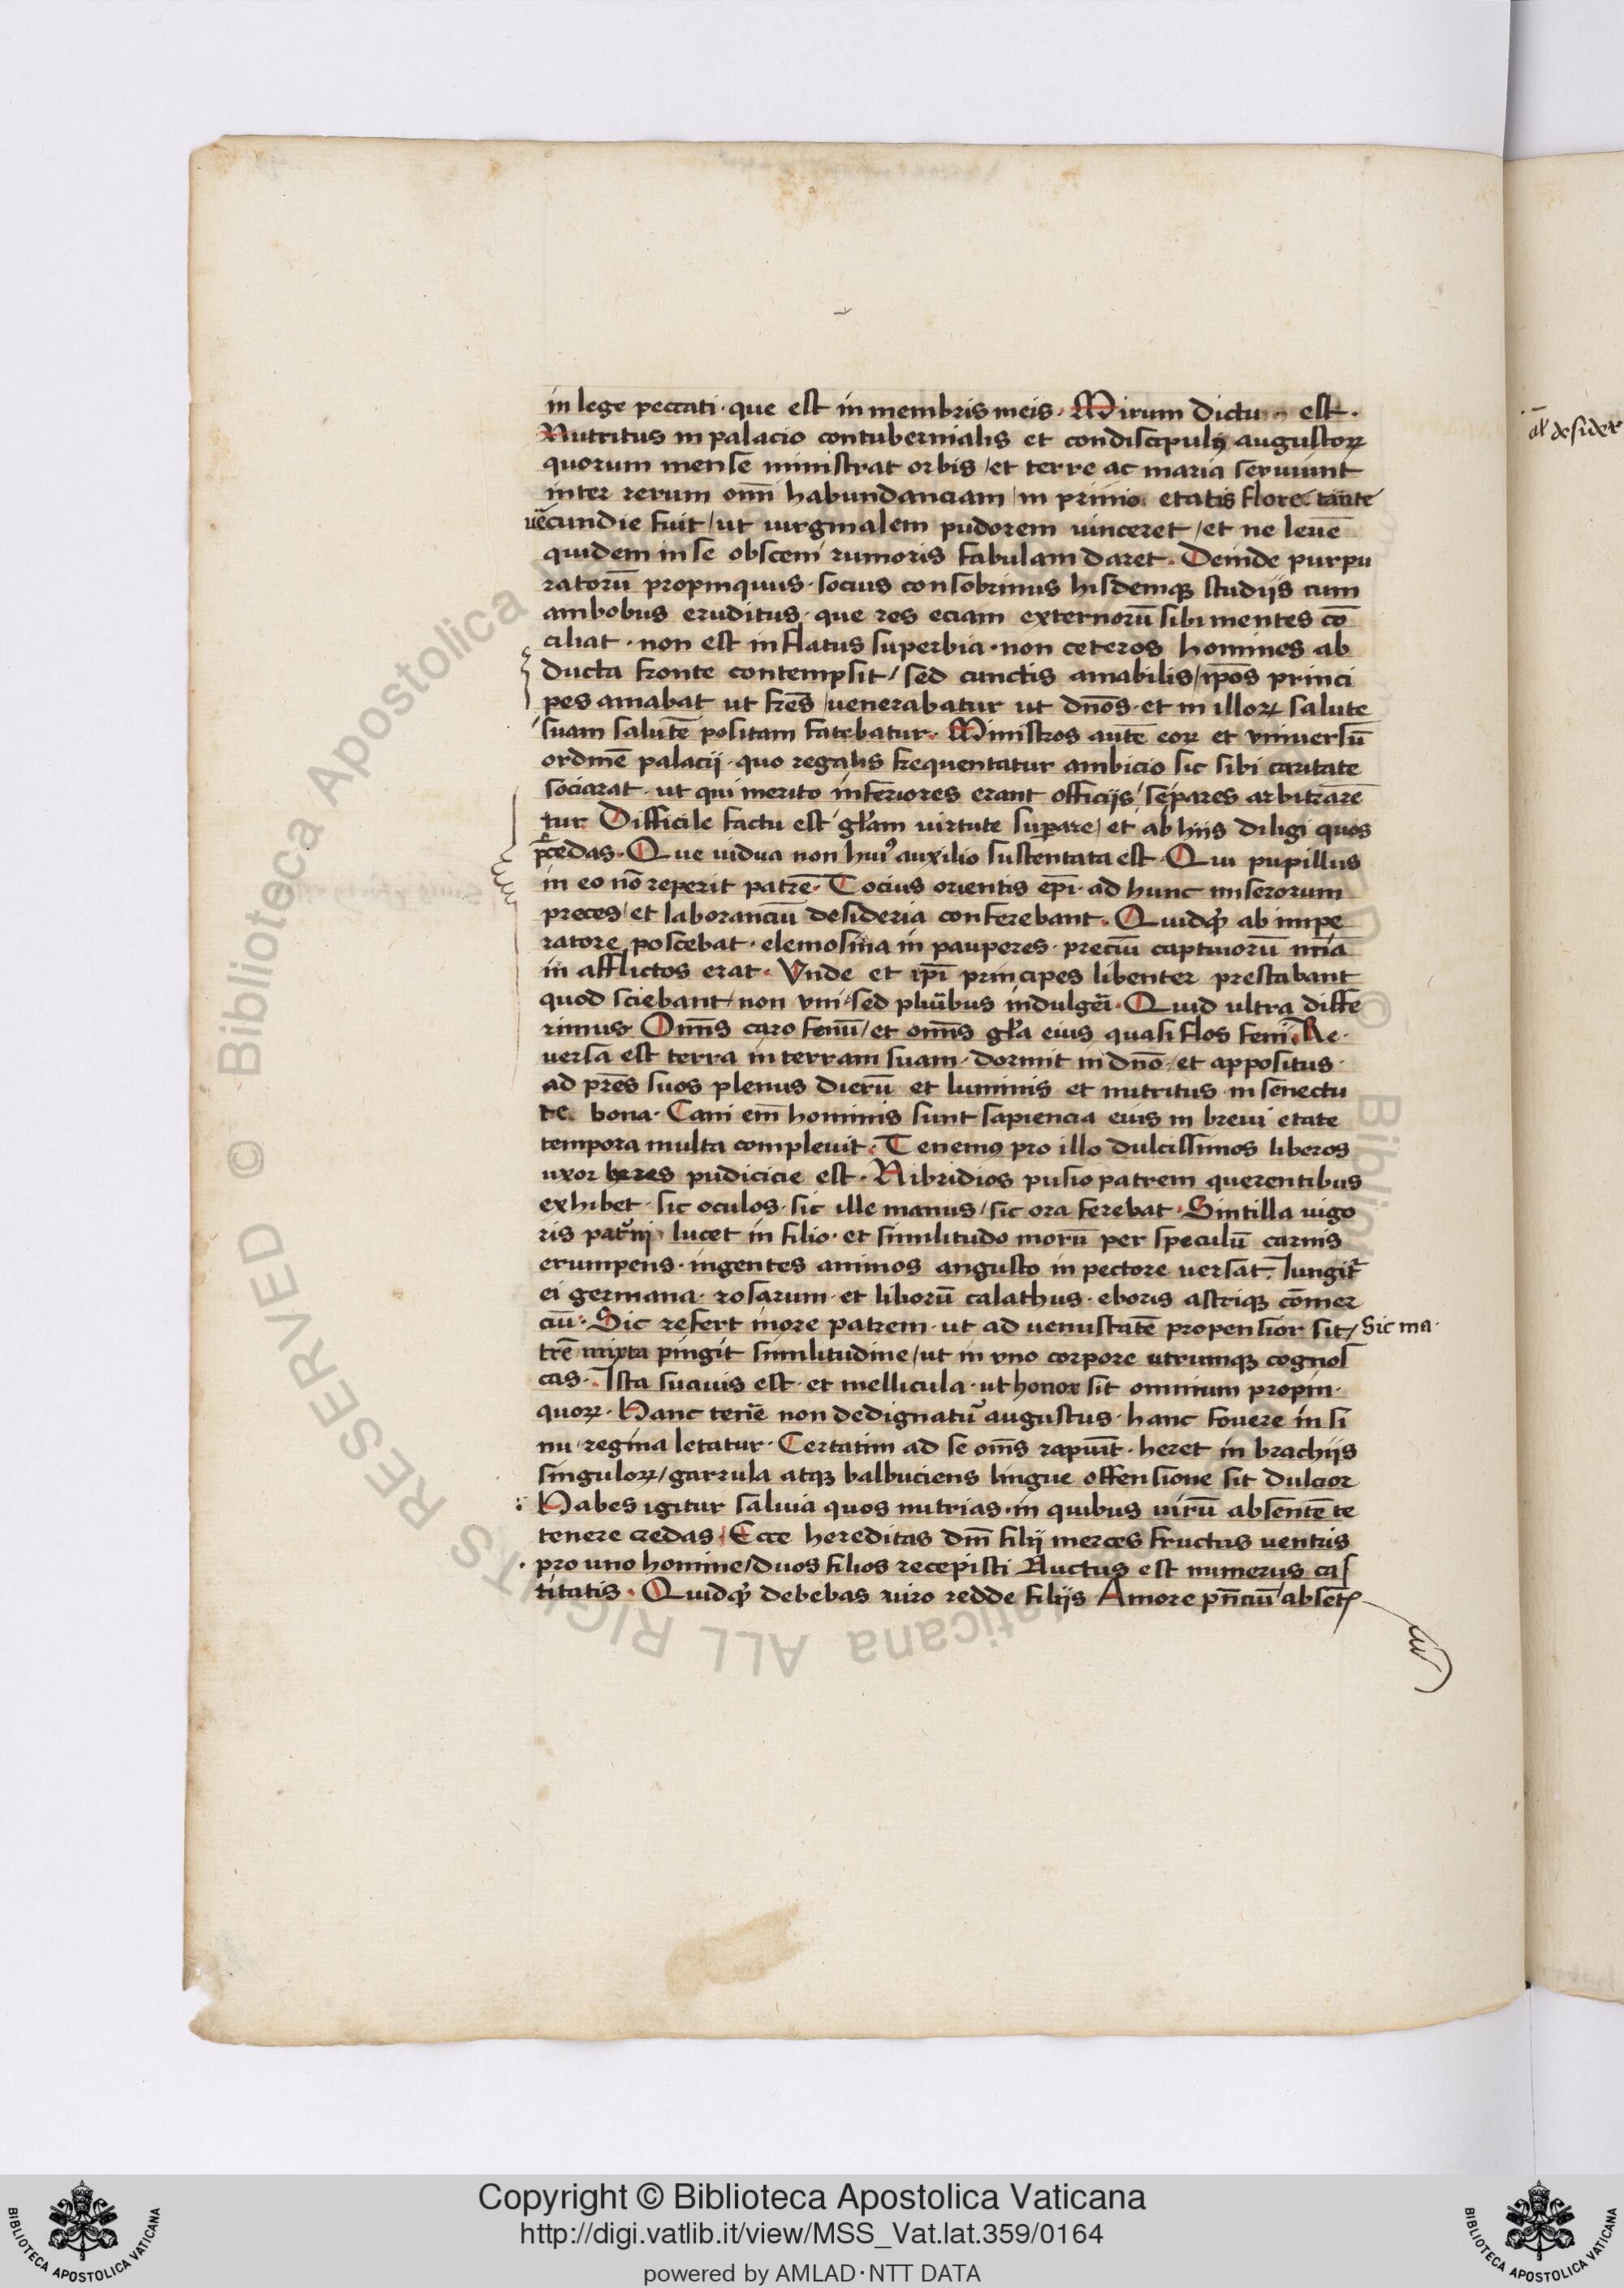 in lege peccati · que est in membris meis · Mirum dictum est ·
Nutritus in palacio contubernialis et condiscipulꝯ augustoꝝ
quorum mense ministrat orbis / et terre ac maria seruiunt
inter rerum om̄i habundanciam / in primo etatis flore tante
ue͞cundie fuit / ut uirginalem pudorem uinceret / et ne leue͞
quidem in se obsceni rumoris fabulam daret · Deinde purpu
ratoru͞ propinquus · socius consobrinus hisdemqꝫ studijs cum
ambobus eruditus · que res eciam externoru͞ sibi mentes co͞
ciliat · non est inflatus superbia · non ceteros homines ab
ducta fronte contempsit / sed cunctis amabilis / ip̄os princi
pes amabat ut fr̄es / uenerabatur ut dn̄os · et in illoꝝ salute
suam salute͞ positam fatebatur · Ministros aute͞ eoꝝ et vniuersu͞
ordine͞ palacij · quo regalis frequentatur ambicio sic sibi caritate
sociarat · ut qui merito inferiores erant officijs / se pares arbitrare͞
tur Difficile factu est gl̄am uirtute sup̱are / et ab hiis diligi quos
p̄cedas · Que uidua non huiꝰ auxilio sustentata est · Qui pupillus
in eo no͞ reperit patre͞ · Tocius orientis ep̄i · ad hunc miserorum
preces / et laboranciu͞ desideria conferebant · Quidqͥd ab impe
ratore poscebat · elemosina in pauperes · preciu͞ captiuoru͞ mīa
in afflictos erat · Vnde et ip̄i principes libenter prestabant
quod sciebant / non vni / sed plurībus indulgeri · Quid ultra diffe
rimus Om̄is caro fenu͞ / et om̄is gl̄a eius quasi flos feni · Re ·
uersa est terra in terram suam · dormit in dn̄o · et appositus ·
ad pr̄es suos plenus dieru͞ et luminis et nutritus in senectu
te bona · Cani em̄ hominis sunt sapiencia eius in breui etate
tempora multa compleuit · Tenemꝯ pro illo dulcissimos liberos
uxor heres pudicicie est · Nibridios pusio patrem querentibus
exhibet · sic oculos · sic ille manus / sic ora ferebat · Sintilla uigo
ris pat͛ni lucet in filio · et similitudo moru͞ per speculu͞ carnis
erumpens · ingentes animos angusto in pectore uersat · Iungit͛
ei germana · rosarum · et lilioru͞ calathus · eboris astriqꝫ co͞mer
ciu͞ · Sic refert in ore patrem · ut ad uenustate͞ propensior sit / Sic ma ·
tre͞ mixta pingit similitudine / ut in vno corpore utrumqꝫ cognos
cas · Ista suauis est · et mellicula · ut honor sit omnium propin ·
quoꝝ · Hanc tene͛ non dedignatu͛ augustus · hanc fouere in si
nu · regina letatur · Certatim ad se om̄s rapiu͞t · heret in brachijs
singuloꝝ / garrula atqꝫ balbuciens lingue offensione fit dulcior
Habes igitur saluia quos nutrias · in quibus uiru͞ absente͞ te
tenere credas · Ecce hereditas dn̄i filij merces fructus uentris
pro uno homine / duos filios recepisti Auctus est numerus cas
titatis · Quidqͥd debebas uiro redde filijs Amore pn̄ciu͞ absent
al̄ desider
Copyright © Biblioteca Apostolica Vaticana
http://digi.vatlib.it/view/MSS_Vat.lat.359/0164
powered by AMLAD·NTT DATA
BIBLIOTECA APOSTOLICA VATICANA
BIBLIOTECA APOSTOLICA VATICANA
© Biblioteca Apostolica Vaticana ALL RIGHTS RESERVED